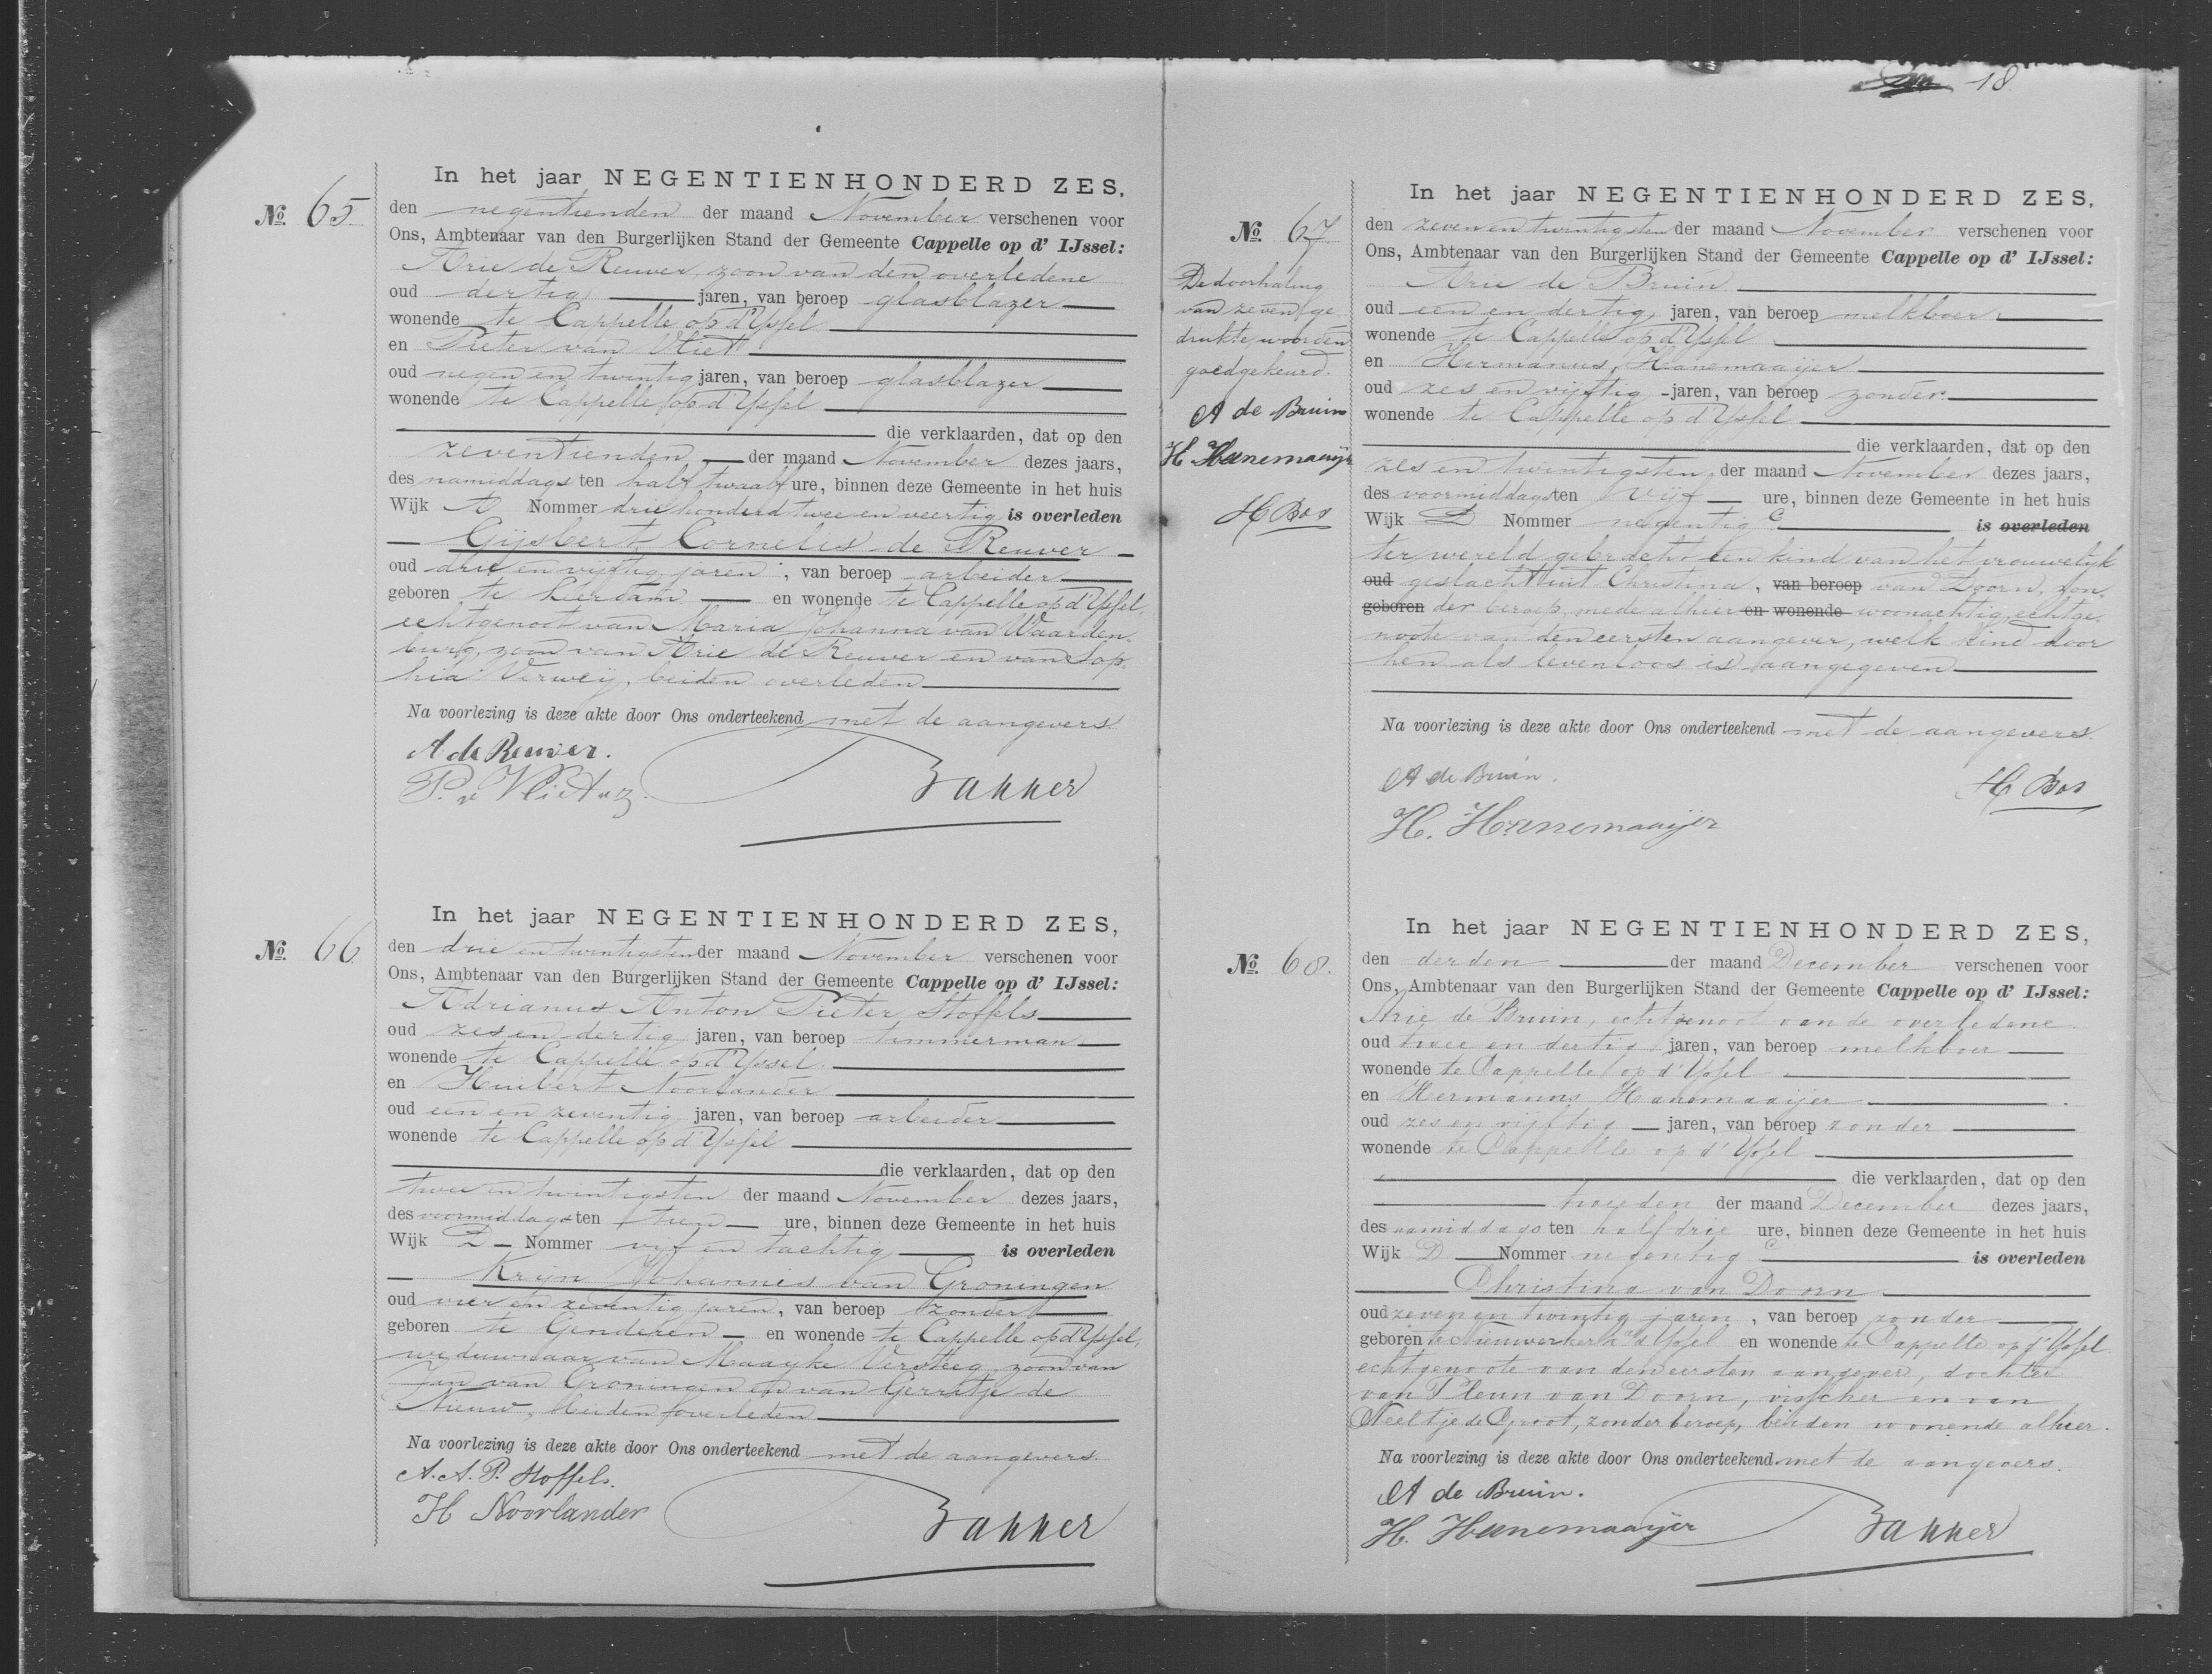 18.
No. 65
In het jaar NEGENTIENHONDERD ZES,
den negentienden der maand November verschenen voor
Ons, Ambtenaar van den Burgerlijken Stand der Gemeente Cappelle op d' IJssel:
Arie de Reuver, zoon van den overledene
oud dertig jaren, van beroep glasblazer
wonende te Cappelle op d'Yssel
en Pieter van Vliet
oud negen en twintig jaren, van beroep glasblazer
wonende te Cappelle op d'Yssel
die verklaarden, dat op den
zeventienden der maand November dezes jaars,
des namiddags ten half twaalf ure, binnen deze Gemeente in het huis
Wijk A Nommer driehonderd twee en veertig is overleden
Gijsbert Cornelis de Reuver
oud drie en vijftig jaren, van beroep arbeider
geboren te Leerdam en wonende te Cappelle op d'Yssel,
echtgenoot van Maria Johanna van Waarden-
burg, zoon van Arie de Reuver en van Sop-
hia Verweij, beiden overleden
Na voorlezing is deze akte door Ons onderteekend met de aangevers
A de Reuver.
P. v Vliet
Bakker
No. 66
In het jaar NEGENTIENHONDERD ZES,
den drie en twintigsten der maand November verschenen voor
Ons, Ambtenaar van den Burgerlijken Stand der Gemeente Cappelle op d' IJssel:
Adrianus Anton Pieter Stoffels
oud zes en dertig jaren, van beroep timmerman
wonende te Cappelle op d'Yssel
en Huibert Noorlander
oud een en zeventig jaren, van beroep arbeider
wonende te Cappelle op d'Yssel
die verklaarden, dat op den
twee en twintigsten der maand November dezes jaars,
des voormiddags ten tien ure, binnen deze Gemeente in het huis
Wijk D Nommer vijf en tachtig is overleden
Krijn Johannis van Groningen
oud vier en zeventig jaren, van beroep zonder
geboren te Genderen en wonende te Cappelle op d'Yssel,
weduwnaar van Maayke Versteeg, zoon van
Jan van Groningen en van Gerritje de
Nieuw, beiden overleden
Na voorlezing is deze akte door Ons onderteekend met de aangevers.
A. A. P. Stoffels.
H Noorlander
Bakker
No. 67
De doorhaling
van zeven ge
drukte woorden
goedgekeurd.
A de Bruin
H Hanemaaijer
H Bos
In het jaar NEGENTIENHONDERD ZES,
den zeven en twintigsten der maand November verschenen voor
Ons, Ambtenaar van den Burgerlijken Stand der Gemeente Cappelle op d' IJssel:
Arie de Bruin
oud een en dertig jaren, van beroep melkboer
wonende te Cappelle op d'Yssel
en Hermanus Hanemaaijer
oud zes en vijftig jaren, van beroep zonder
wonende te Cappelle op d'Yssel
die verklaarden, dat op den
zes en twintigsten der maand November dezes jaars,
des voormiddags ten vijf ure, binnen deze Gemeente in het huis
Wijk D Nommer negentig c is overleden
ter wereld gebracht een kind van het vrouwelijk
oud geslacht uit Christina, van beroep van Doorn, zon-
geboren der beroep, mede alhier en wonende woonachtig, echtge-
noote van den eersten aangever, welk kind door
hen als levenloos is aangegeven
Na voorlezing is deze akte door Ons onderteekend met de aangevers.
A de Bruin.
H Bos
H. Hanemaaijer
No. 68.
In het jaar NEGENTIENHONDERD ZES,
den derden der maand December verschenen voor
Ons, Ambtenaar van den Burgerlijken Stand der Gemeente Cappelle op d' IJssel:
Arie de Bruin, echtgenoot van de overledene
oud twee en dertig jaren, van beroep melkboer
wonende te Cappelle op d'Yssel
en Hermanus Hanemaaijer
oud zes en vijftig jaren, van beroep zonder
wonende te Cappelle op d'Yssel
die verklaarden, dat op den
tweeden der maand December dezes jaars,
des namiddags ten half drie ure, binnen deze Gemeente in het huis
Wijk D Nommer negentig c is overleden
Christina van Doorn
oud zeven en twintig jaren, van beroep zonder
geboren te Nieuwerkerk a/d Yssel en wonende te Cappelle op d'Yssel
echtgenoote van den eersten aangever, dochter
van Pleun van Doorn, visscher en van
Neeltje de Groot, zonder beroep, beiden wonende alhier.
Na voorlezing is deze akte door Ons onderteekend met de aangevers.
A de Bruin.
H. Hanemaaijer
Bakker